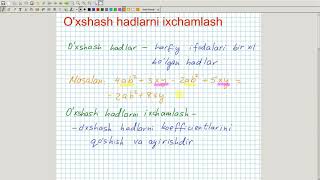 O'xshash hadlarni ixchamlash
O'xshash hadlar – harfiy ifodalari bir xil
bo'lgan hadlar
Masalan: 4ab² + 3xy - 2ab² + 5xy =
- 2ab² + 8xy
O'xshash hadlarni ixchamlash -
- o'xshash hadlarni koeffitsientlarini
qo'shish va ayirishdir